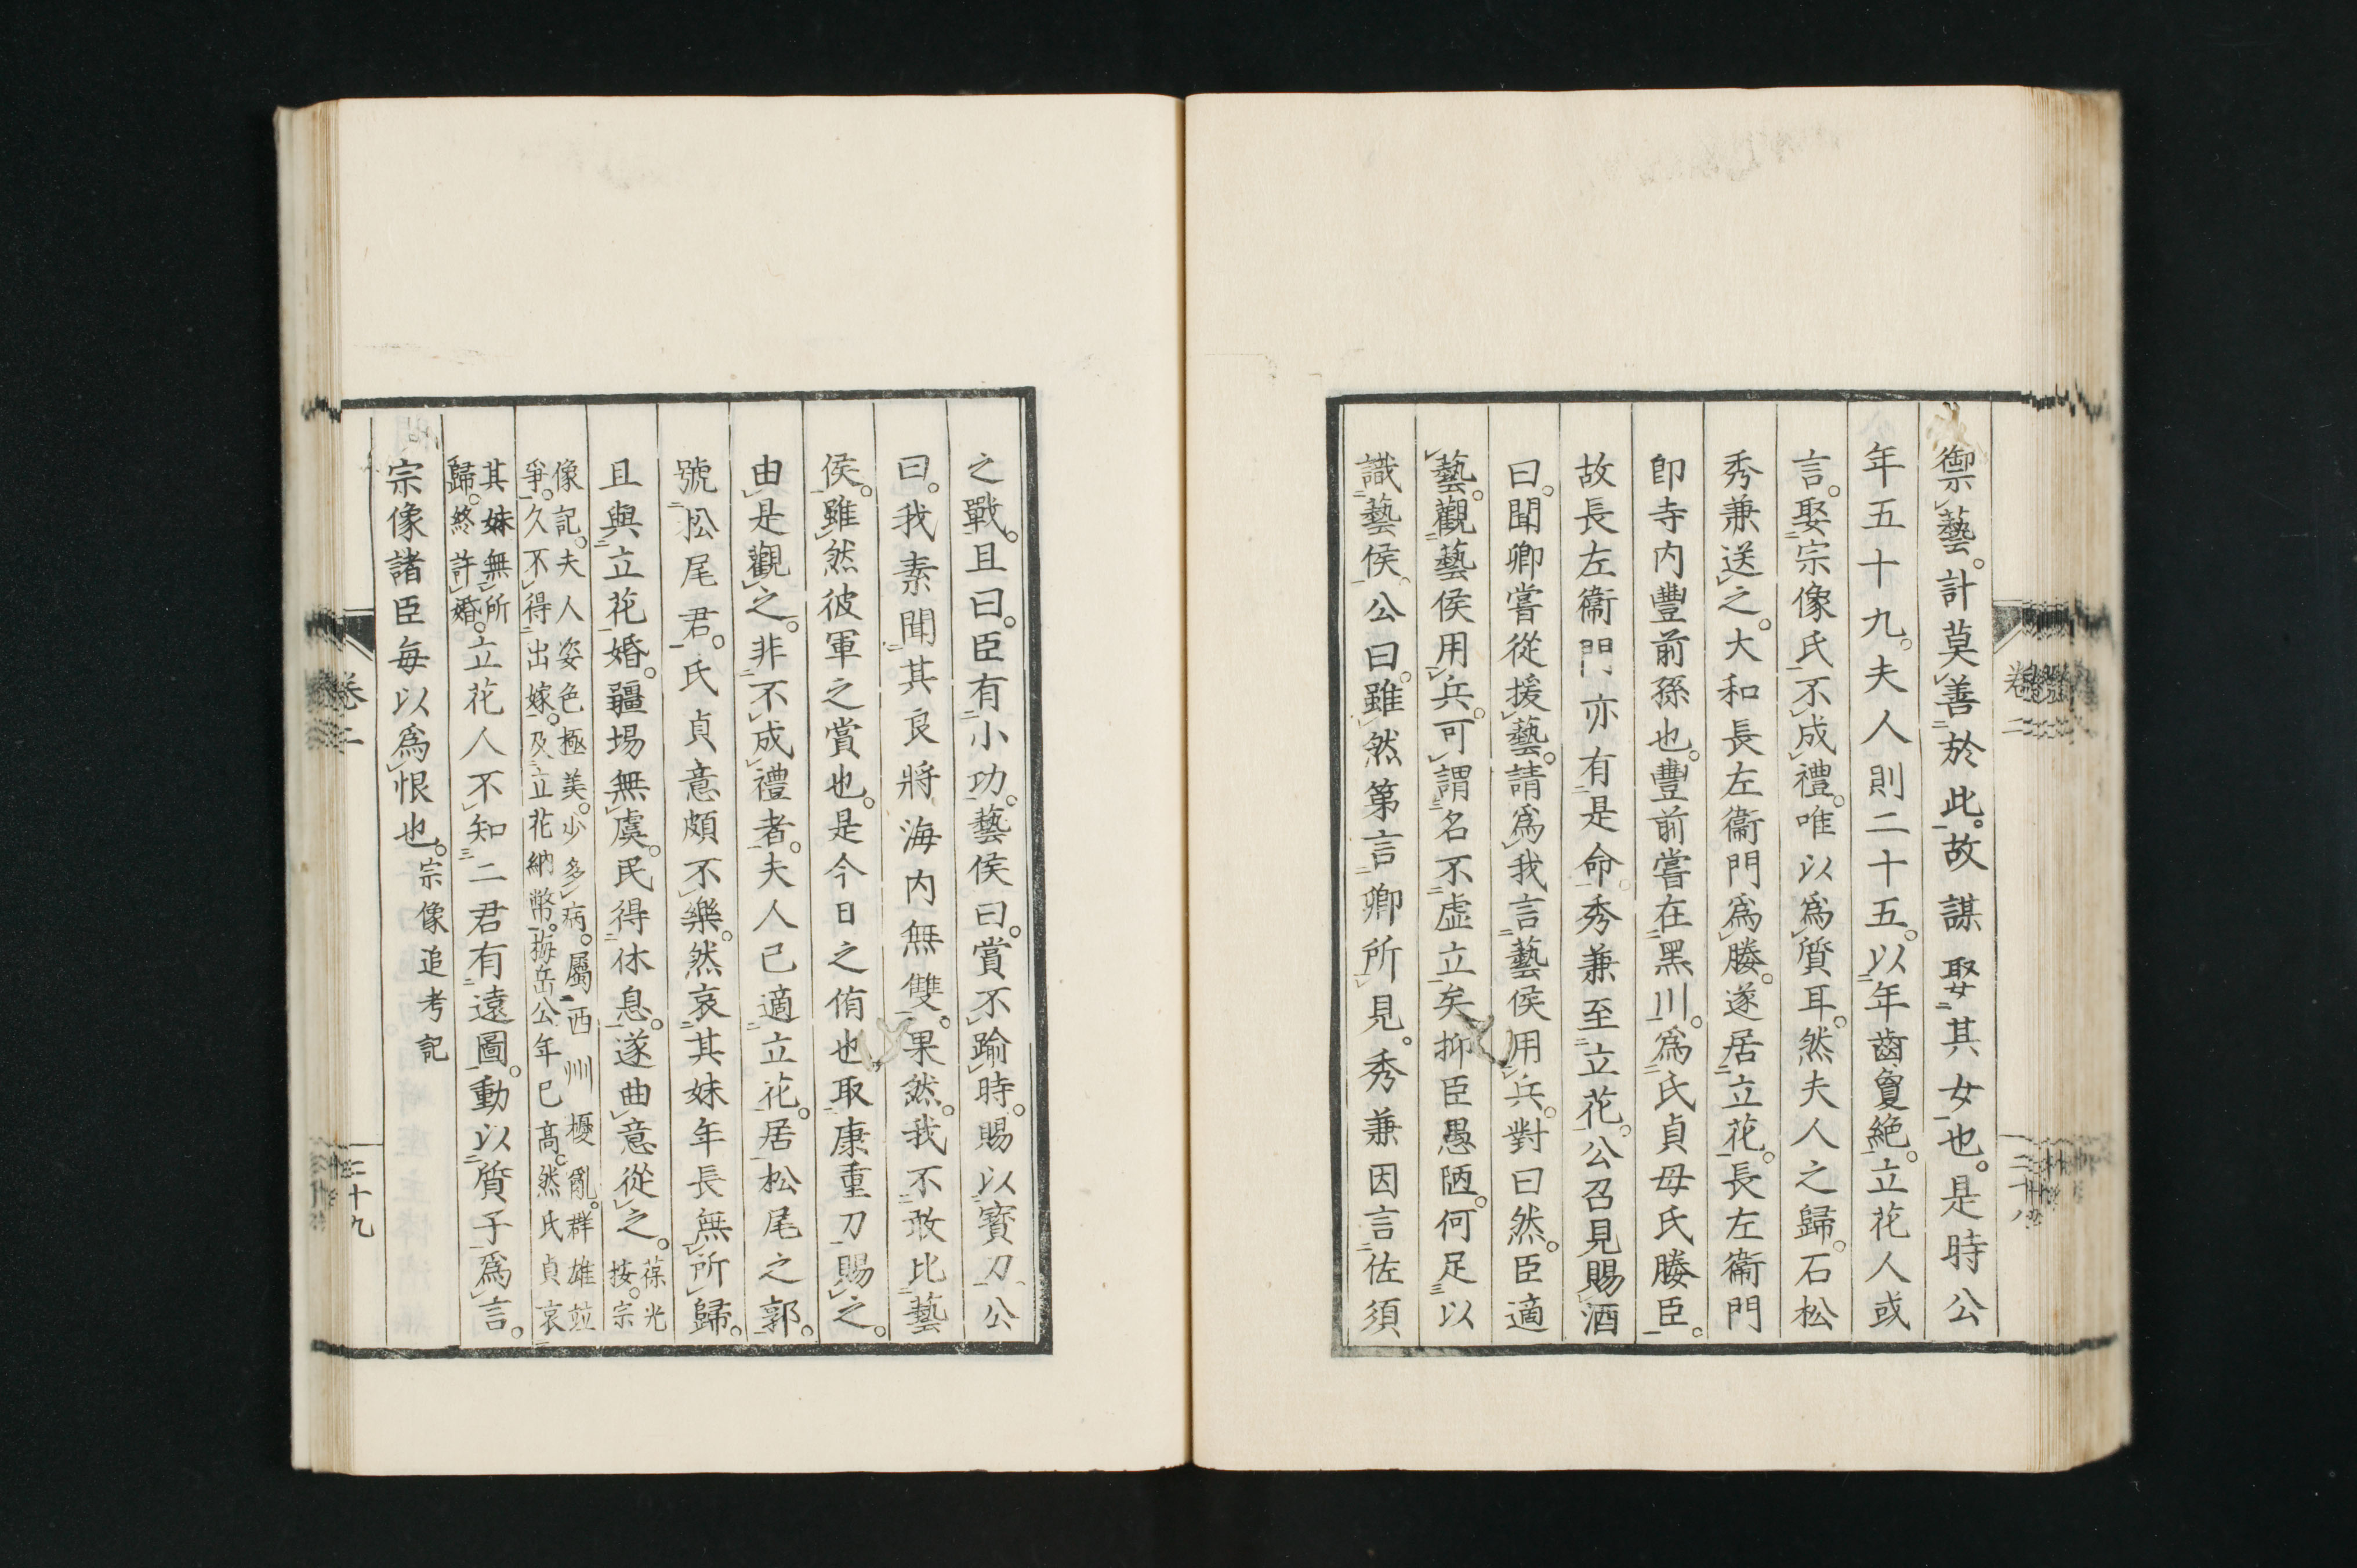 御藝。計莫善於此。故謀娶其女也。是時公
年五十九。夫人則二十五。以年齒敻絶。立花人或
言。娶宗像氏不成禮。唯以為質耳。然夫人之歸。石松
秀兼送之。大和長左衞門為媵。遂居立花。長左衞門
即寺内豐前孫也。豐前嘗在黑川。為氏貞母氏媵臣。
故長左衞門亦有是命。秀兼至立花。公召見賜酒
曰。聞卿嘗從援藝。請為我言藝侯用兵。對曰然。臣適
藝。觀藝侯用兵。可謂名不虛立矣。抑臣愚陋。何足以
識藝侯。公曰。雖然第言卿所見。秀兼因言佐須
之戰。且曰。臣有小功。藝侯曰。賞不踰時。賜以寳刀。公
曰。我素聞其良將海内無雙。果然。我不敢比藝
侯。雖然彼軍之賞也。是今日之侑也。取康重刀賜之。
由是觀之。非不成禮者。夫人已適立花。居松尾之郭。
號松尾君。氏貞意頗不樂。然哀其妹年長無所歸。
且與立花婚。疆場無虞。民得休息。遂曲意從之。葆光
按。宗
像記。夫人姿色極美。少多病。屬西州擾亂。群雄竝
爭。久不得出嫁。及立花納幣。梅岳公年已高。然氏貞哀
其妹無所
歸。終許婚。立花人不知二君有遠圖。動以質子為言。
宗像諸臣每以為恨也。宗像追考記
卷二
二十九
卷二